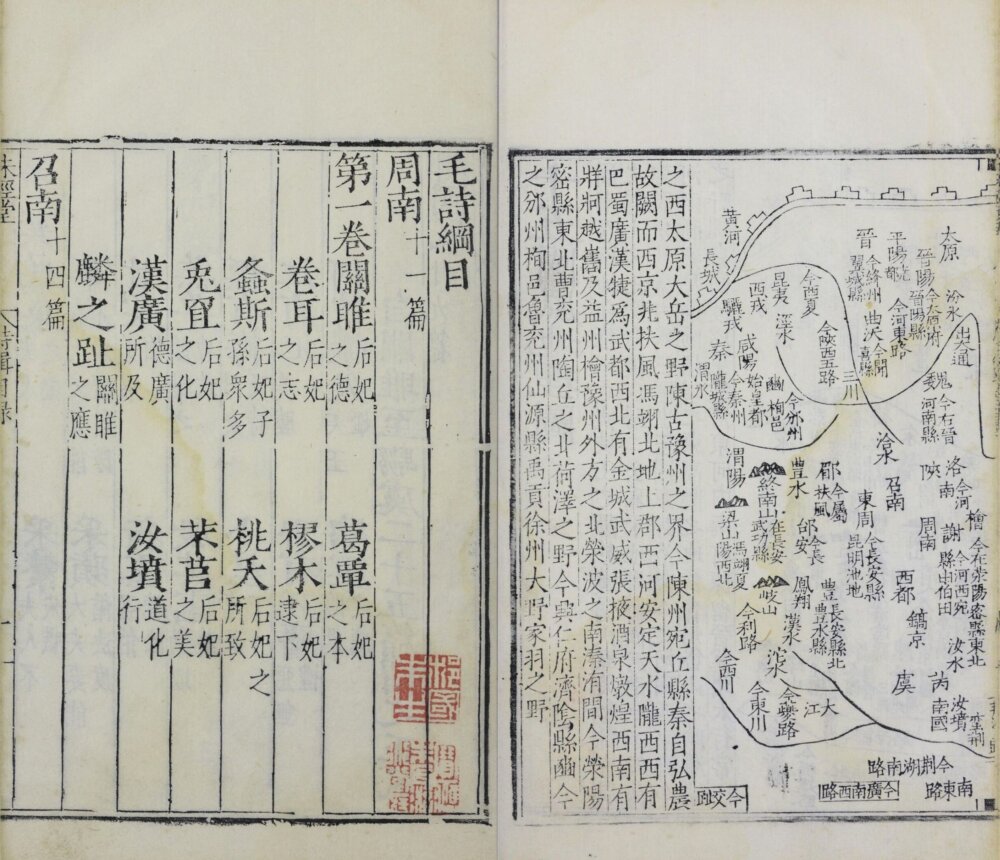 太原
汾水
出入道
晉陽今太原府晉陽縣
平陽堯都今河東路
晉
今絳州翼城縣
曲沃今聞喜縣
魏今在晉河南縣
黃河
長城
今西夏
昆夷
涇水
今陝西五路
三川
西戎
驪戎
咸陽始皇都
豳今邠州栒邑
秦今秦州隴城縣
渭水
洽水
召南
洛今河南
陝
周南
謝今河西宛縣伯田
檜今在滎陽密縣東北
渭陽
終南山在長安武功縣
豐水
郿今屬扶風
東周
今長安縣昆明池地
西都
鎬京
汝水
汝墳
梁山馮翊夏陽西北
岐山
邰今長安
鳳翔
豐長安縣北豐水縣
漢水
今利路
沱水
今西川
今東川
今夔路
大江
虞
芮
南國
今荊湖南路
今廣南西路
南東路
之西太原大岳之野陳古豫州之界今陳州宛丘縣秦自弘農
故關而西京兆扶風馮翊北地上郡西河安定天水隴西西有
巴蜀廣漢犍為武都西北有金城武威張掖酒泉燉煌西南有
牂牁越嶲及益州檜豫州外方之北滎波之南溱洧間今滎陽
密縣東北曹兗州陶丘之北荷澤之野今興仁府濟陰縣豳今
之邠州栒邑魯兗州仙源縣禹貢徐州大野蒙羽之野
毛詩綱目
周南十一篇
第一卷關雎后妃之德 葛覃后妃之本
卷耳后妃之志 樛木后妃逮下
螽斯后妃子孫眾多 桃夭后妃之所致
兎罝后妃之化 芣苢后妃之美
漢廣德廣所及 汝墳道化行
麟之趾關雎之應
召南十四篇
詩緝目錄